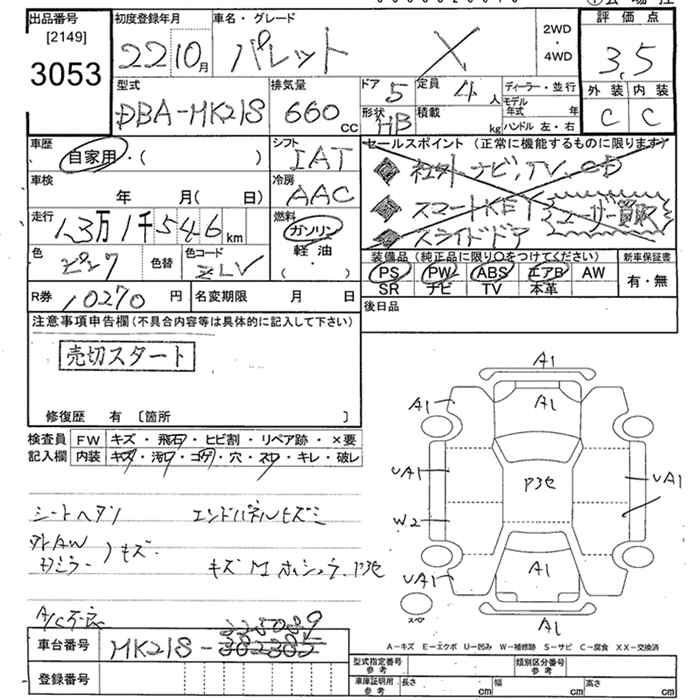 出品番号
[2149]
3053
初度登録年月
22 10月
車名・グレード
パレット X
2WD
・
4WD
評価点
3.5
外装 内装
C C
型式
DBA-MK21S
排気量
660 cc
ドア 5
形状 HB
定員 4 人
積載 kg
ディーラー・並行
モデル年式 年
ハンドル 左・右
車歴
自家用・( )
シフト
IAT
セールスポイント (正常に機能するものに限ります)
社外ナビ,TV,CD
スマートKEY
スライドドア
ユーザー買取
車検
年 月( 日)
冷房
AAC
走行
13万1千546km
燃料
ガソリン
軽油
・( )
色
ピンク
色替
色コード
ZLV
装備品 (純正品に限り○をつけてください)
PS PW ABS エアB AW
SR ナビ TV 本革
新車保証書
有・無
R券 10270円
名変期限 月 日
後日品
注意事項申告欄 (不具合内容等は具体的に記入して下さい)
売切スタート
修復歴 有 〔箇所 〕
検査員記入欄
FW キズ・飛石・ヒビ割・リペア跡・×要
内装 キズ・汚レ・コゲ・穴・スレ・キレ・破レ
シートヘタリ
エンドパネルヒズミ
外AW
ミラー
キズ
キズ
A/C不良
A1
A1
A1
UA1
P3セ
UA1
W2
A1
UA1
スペア
A1
A-キズ E-エクボ U-凹み W-補修跡 S-サビ C-腐食 XX-交換済
車台番号
MK21S-
登録番号
型式指定番号 参考
類別区分番号 参考
車庫証明用 参考
長さ cm
幅 cm
高さ cm